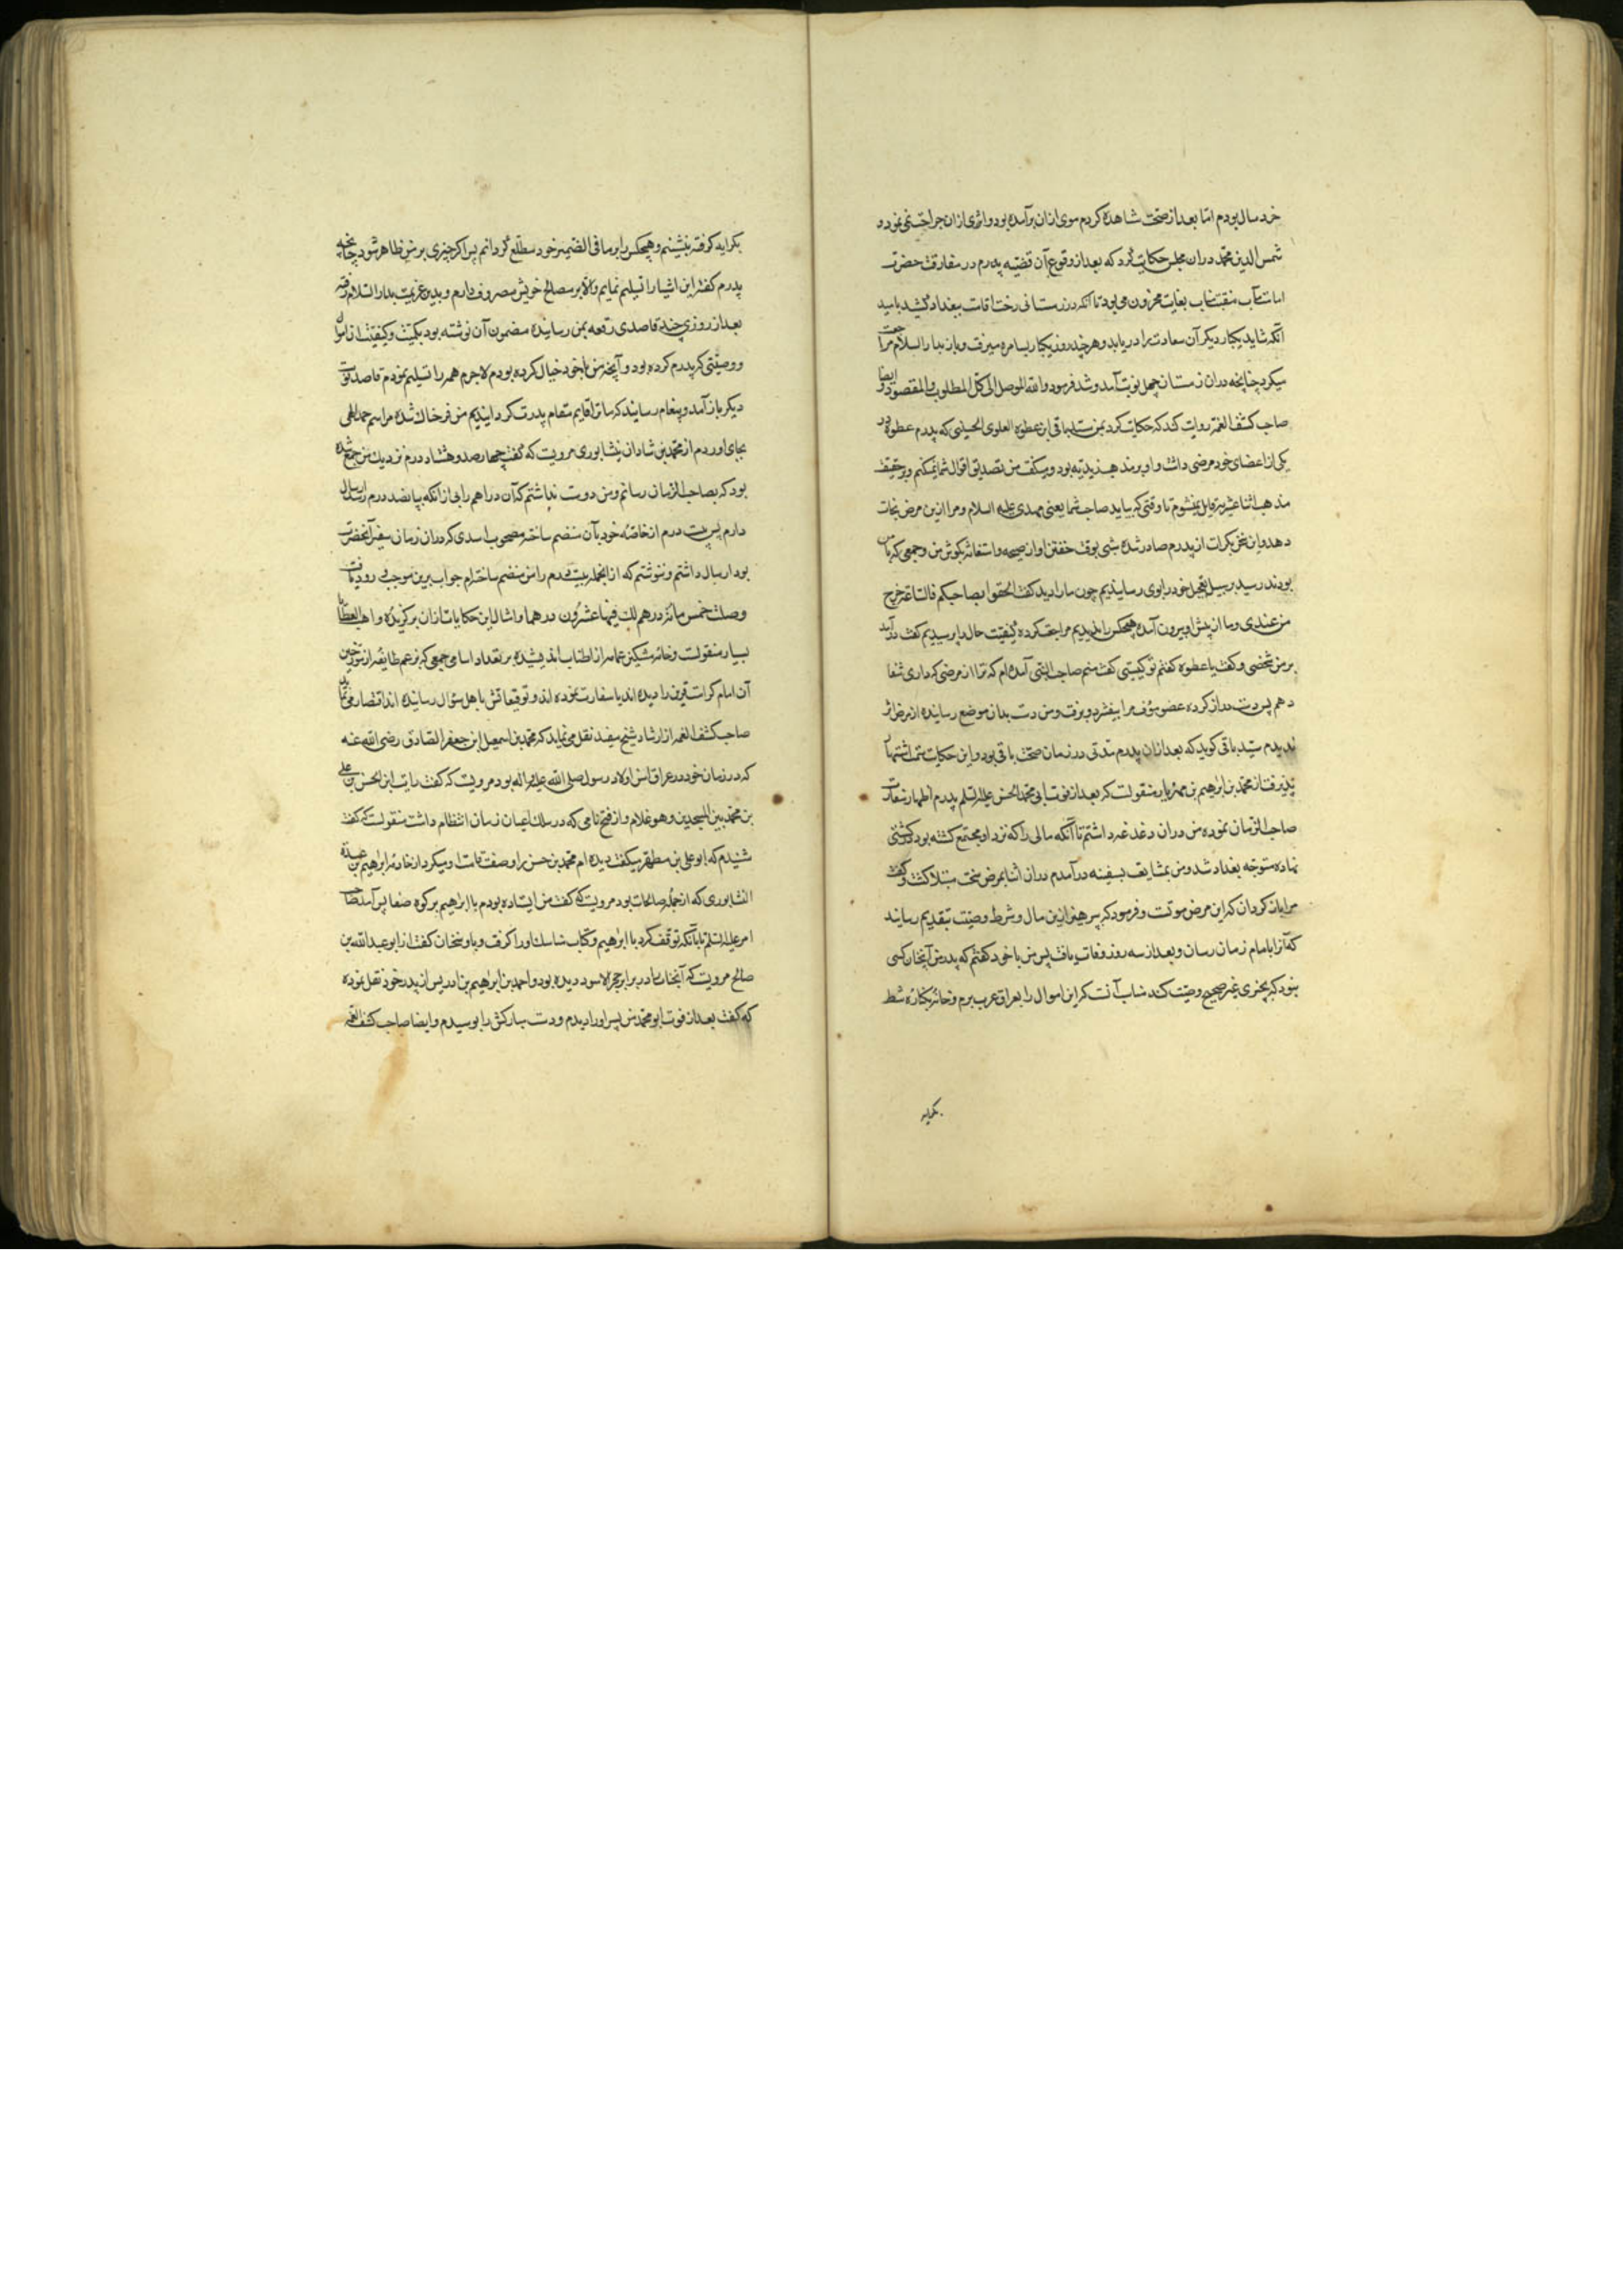 خرد سال بودم اما بعد از صحت مشاهده کردم موی ازان برآمده بود و اثری ازان جراحت نمی نمود و
شمس الدین محمد دران مجلس حکایت کرد که بعد از وقوع آن قضیه پدرم در مفارقت حضرت
امامت مآب منقبت مناب بغایت محزون می بود تا آنکه در زمستانی رخت اقامت ببغداد کشید بامید
آنکه شاید یکبار دیگر آن سعادت را دریابد و هر چند روز یکبار بسامره میرفت و باز بدار السلام مراجعت
میکرد چنانچه دران زمستان چهل نوبت آمد و شد فرمود والله الموصل الی کل المطلوب والمقصود و ایضا
صاحب کشف الغمه روایت کند که حکایت کرد بمن سید باقی ابن عطوه العلوی الحسینی که پدرم عطوه در
یکی از اعضای خود مرضی داشت و او بر مذهب زیدیه بود و میگفت من تصدیق اقوال شما نمیکنم و بر حقیقت
مذهب اثنا عشریه قایل نمیشوم تا وقتی که بیاید صاحب شما یعنی مهدی علیه السلام و مرا ازین مرض نجات
دهد و این سخن بکرات از پدرم صادر شده شبی بوقت خفتن اواز صیحه و استغاثه بگوش من و جمعی که با من
بودند رسید بر سبیل تعجیل خود را بوی رسانیدیم چون ما را دید گفت الحقوا بصاحبکم فالساعة خرج
من عندی و ما از پیش او بیرون آمده هیچکس را ندیدیم مراجعت کرده کیفیت حال را پرسیدیم گفت درآمد
بر من شخصی و گفت یا عطوه گفتم تو کیستی گفت منم صاحب البنی آمده ام که ترا از مرضی که داری شفا
دهم پس دست دراز کرده عضو مؤف مرا بیفشرد و برفت و من دست بدان موضع رسانیده از مرض اثر
ندیدم سید باقی گوید که بعد ازان پدرم مدتی در زمان صحت باقی بود و این حکایت سمت اشتهار
پذیرفت از محمد بن ابراهیم بن مهزیار منقولست که بعد از فوت ابی محمد الحسن علیه السلم پدرم اظهار سفارت
صاحب الزمان نموده من دران دغدغه داشتم تا آنکه مالی را که نزد او مجتمع گشته بود در کشتی
نهاده متوجه بغداد شد و من بمشایعت بسفینه در آمدم دران اثنا بمرض سخت مبتلا گشت و گفت
مرا باز گردان که این مرض موتست و فرمود که بپرهیز ازین مال و شرط وصیت بتقدیم رسانید
که آنرا بامام زمان رسان و بعد از سه روز وفات یافت پس من با خود گفتم که پدر من آنچنان کسی
نبود که بچیزی غیر صحیح وصیت کند مناسب آنست که این اموال را بعراق عرب برم و خانه بکناره شط
بکرایه
بکرایه گرفته بنشینم و هیچکس را بر ما فی الضمیر خود مطلع نگردانم پس اگر چیزی بر من ظاهر شود چنانچه
پدرم گفت این اشیا را تسلیم نمایم والا بر مصالح خویش مصروف دارم و بدین عزیمت بدار السلام رفته
بعد از روزی چند قاصدی رقعه بمن رسانیده مضمون آن نوشته بود بکمیت و کیفیت آن اموال
و وصیتی که پدرم کرده بود و آنچه من با خود خیال کرده بودم لاجرم همه را تسلیم نمودم قاصد نوبت
دیگر باز آمد و پیغام رسانید که ما ترا قایم مقام پدرت گردانیدیم من فرحناک شده مراسم حمد الهی
بجای اوردم از محمد بن شادان نیشابوری مرویست که گفت چهار صد و هشتاد درم نزدیک من جمع شده
بود که بصاحب الزمان رسانم و من دوست نداشتم که آن دراهم را بی از آنکه بپانصد درم رسد ارسال
دارم پس بیست درم از خاصه خود بآن منضم ساخته مصحوب اسدی که دران زمان سفیر آنحضرت
بود ارسال داشتم و ننوشتم که از انجمله بیست درم را من منضم ساخته ام جواب برین موجب وردیافت که
وصلت خمس مائة درهم لک فیها عشرون درهما و امثال این حکایات ازان برگزیده واهب العطایا
بسیار منقولست و خامه مشکین عمامه از اطناب اندیشیده بر تعداد اسامی جمعی که بزعم طایفه از مؤرخین
آن امام کرامت قرین را دیده اند یا سفارت نموده اند و توقیعاتش باهل سؤال رسانیده اند اقتصار می نماید
صاحب کشف الغمه از ارشاد شیخ مفید نقل می نماید که محمد بن اسمعیل ابن جعفر الصادق رضی الله عنه
که در زمان خود در عراق اسن اولاد رسول صلی الله علیه و اله بود مرویست که گفت رایت ابن الحسن بن علی
بن محمد بین المسجدین و هو غلام و از فتح نامی که در سلک اعیان زمان انتظام داشت منقولست که گفت
شنیدم که ابو علی بن مطهر میگفت دیده ام محمد بن حسن را و صفت قامت او میکرد از خادمه ابراهیم بن عبده
النشابوری که از جمله صالحات بود مرویست که گفت من ایستاده بودم با ابراهیم بر کوه صفا پس آمد صاحب
امر علیه السلم تا بآنکه توقف کرد با ابراهیم و کتاب مناسک او را گرفت و با او سخنان گفت از ابو عبد الله بن
صالح مرویست که آنجناب را در برابر حجر الاسود دیده بود و احمد بن ابراهیم بن ادریس از پدر خود نقل نموده
که گفت بعد از فوت ابو محمد من پسر اورا دیدم و دست مبارکش را بوسیدم و ایضا صاحب کشف الغمه